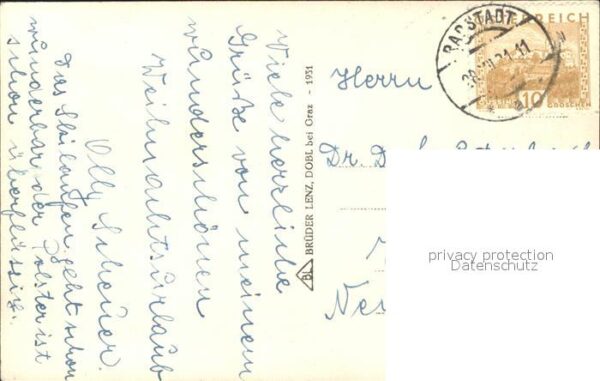 Viele herzliche
Grüße von meinem
wunderschönen
Weihnachtsurlaub
Olly Scheuer.
Das Skilaufen geht schon
wunderbar der Polster ist
schon überflüssig.
BL BRÜDER LENZ, DOBL bei Graz - 1931
Herrn
Dr.
RADSTADT
ÖSTERREICH
10 GROSCHEN
privacy protection
Datenschutz